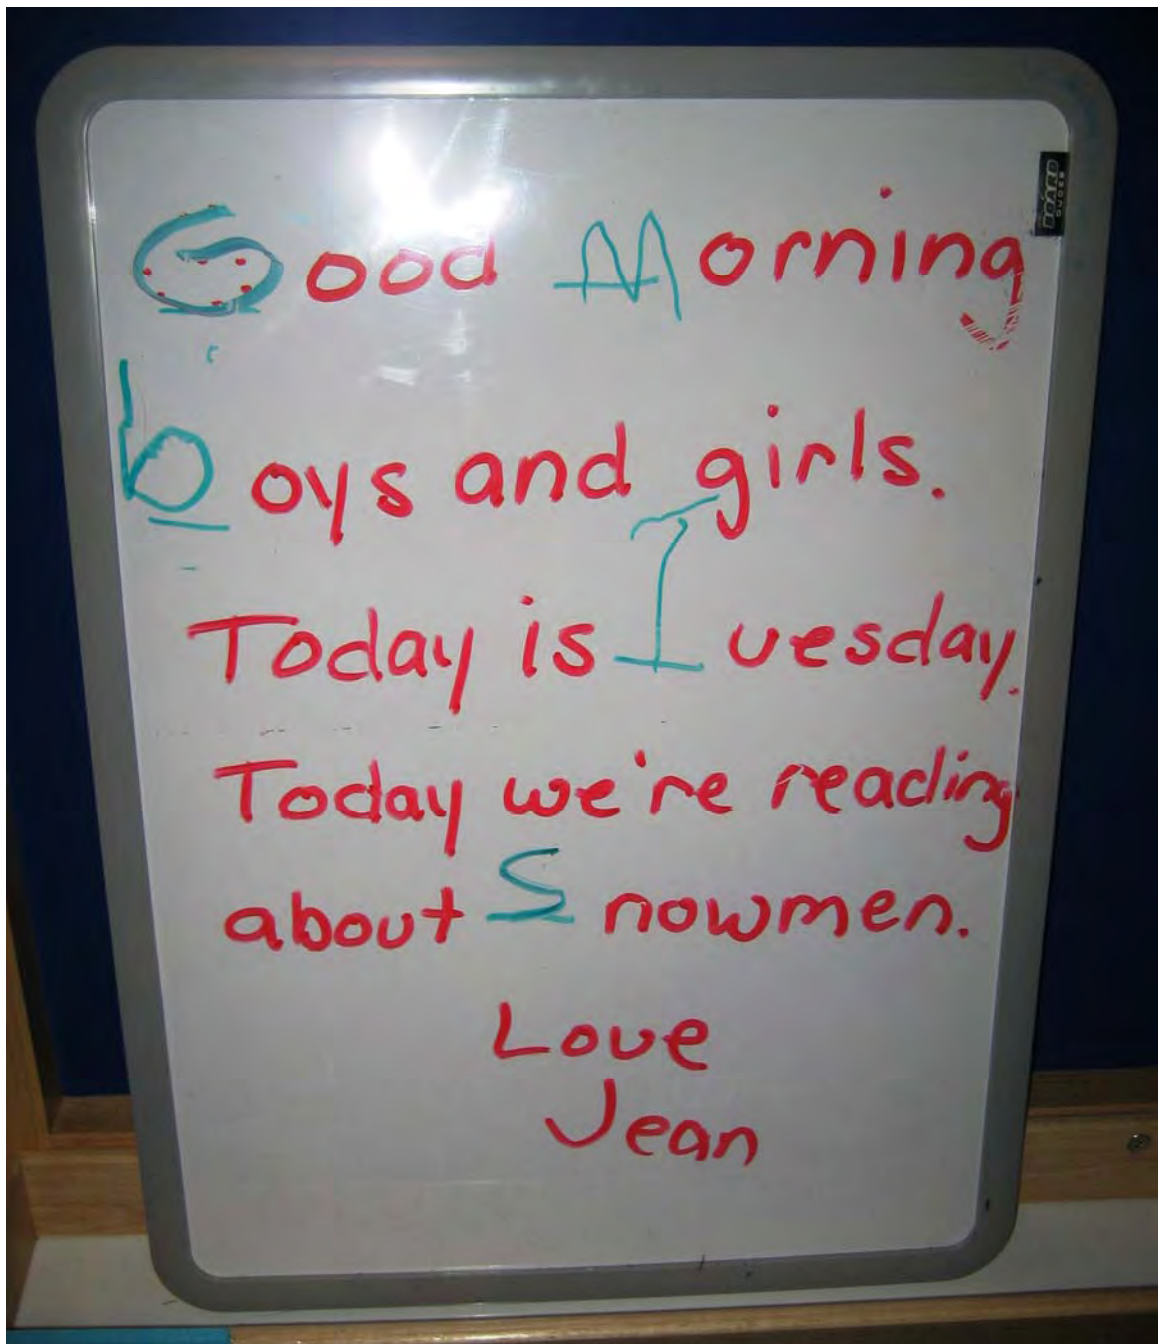 Good Morning
boys and girls.
Today is Tuesday.
Today we're reading
about Snowmen.
Love
Jean